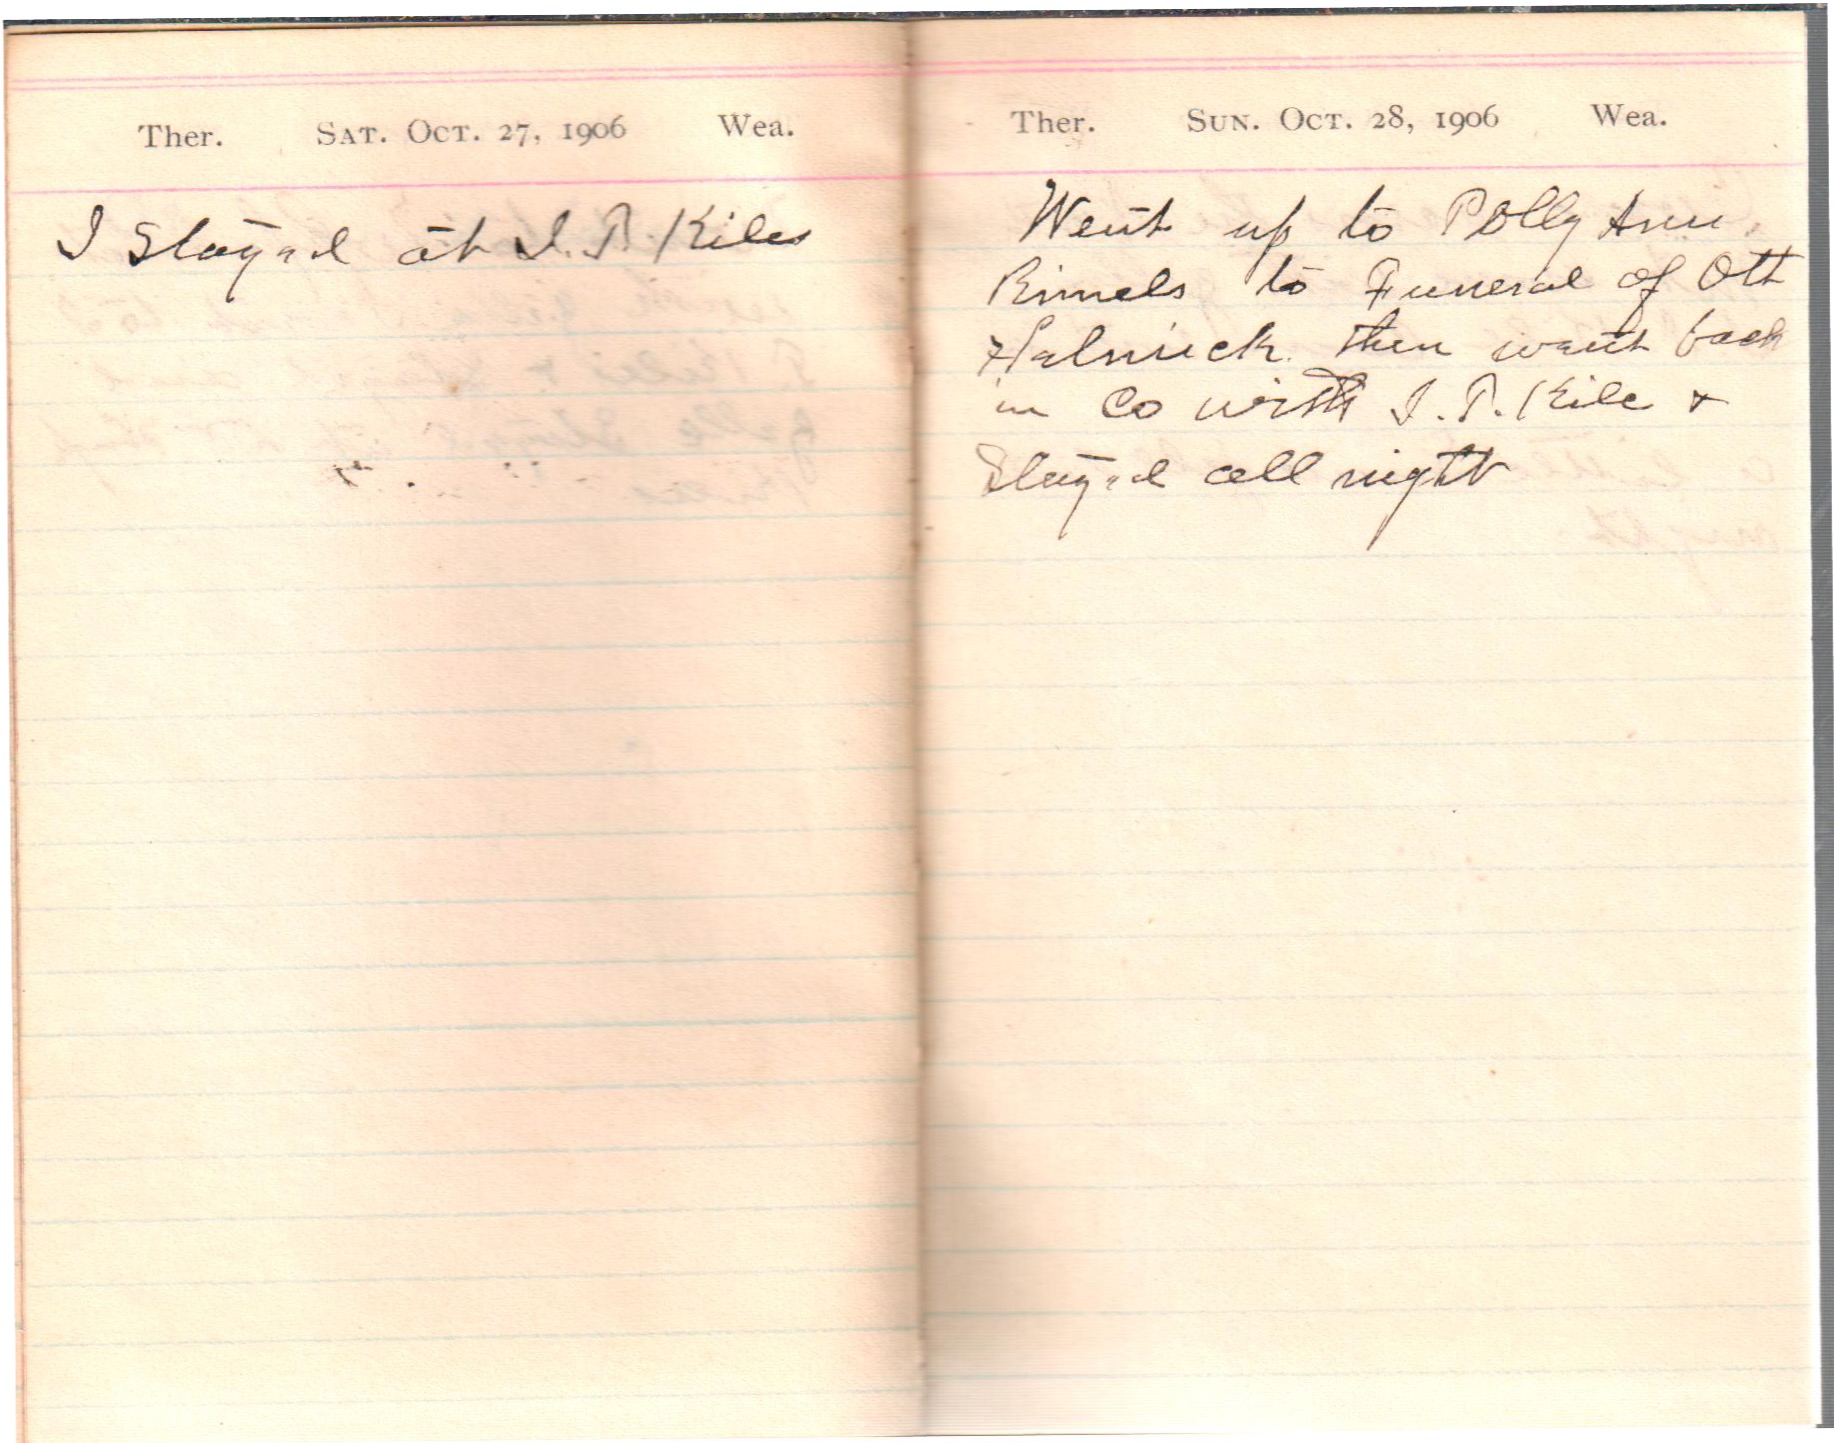 Ther. SAT. OCT. 27, 1906 Wea.
I Stayed at I. T. Kiles
Ther. SUN. OCT. 28, 1906 Wea.
Went up to Polly Ann
Kimels to Funeral of Ott
Halmick then went back
in Co with I. T. Kile &
Stayed all night